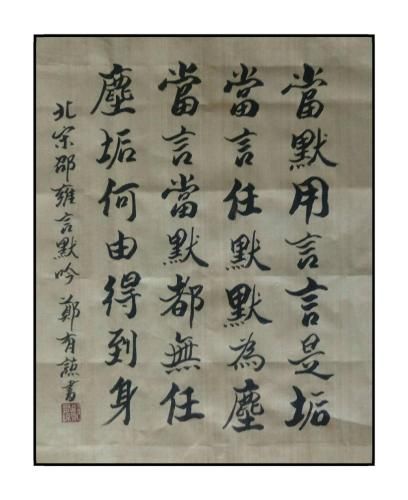 當默用言言是垢
當言任默默為塵
當言當默都無任
塵垢何由得到身
北宋邵雍言默吟 鄭有㷰書